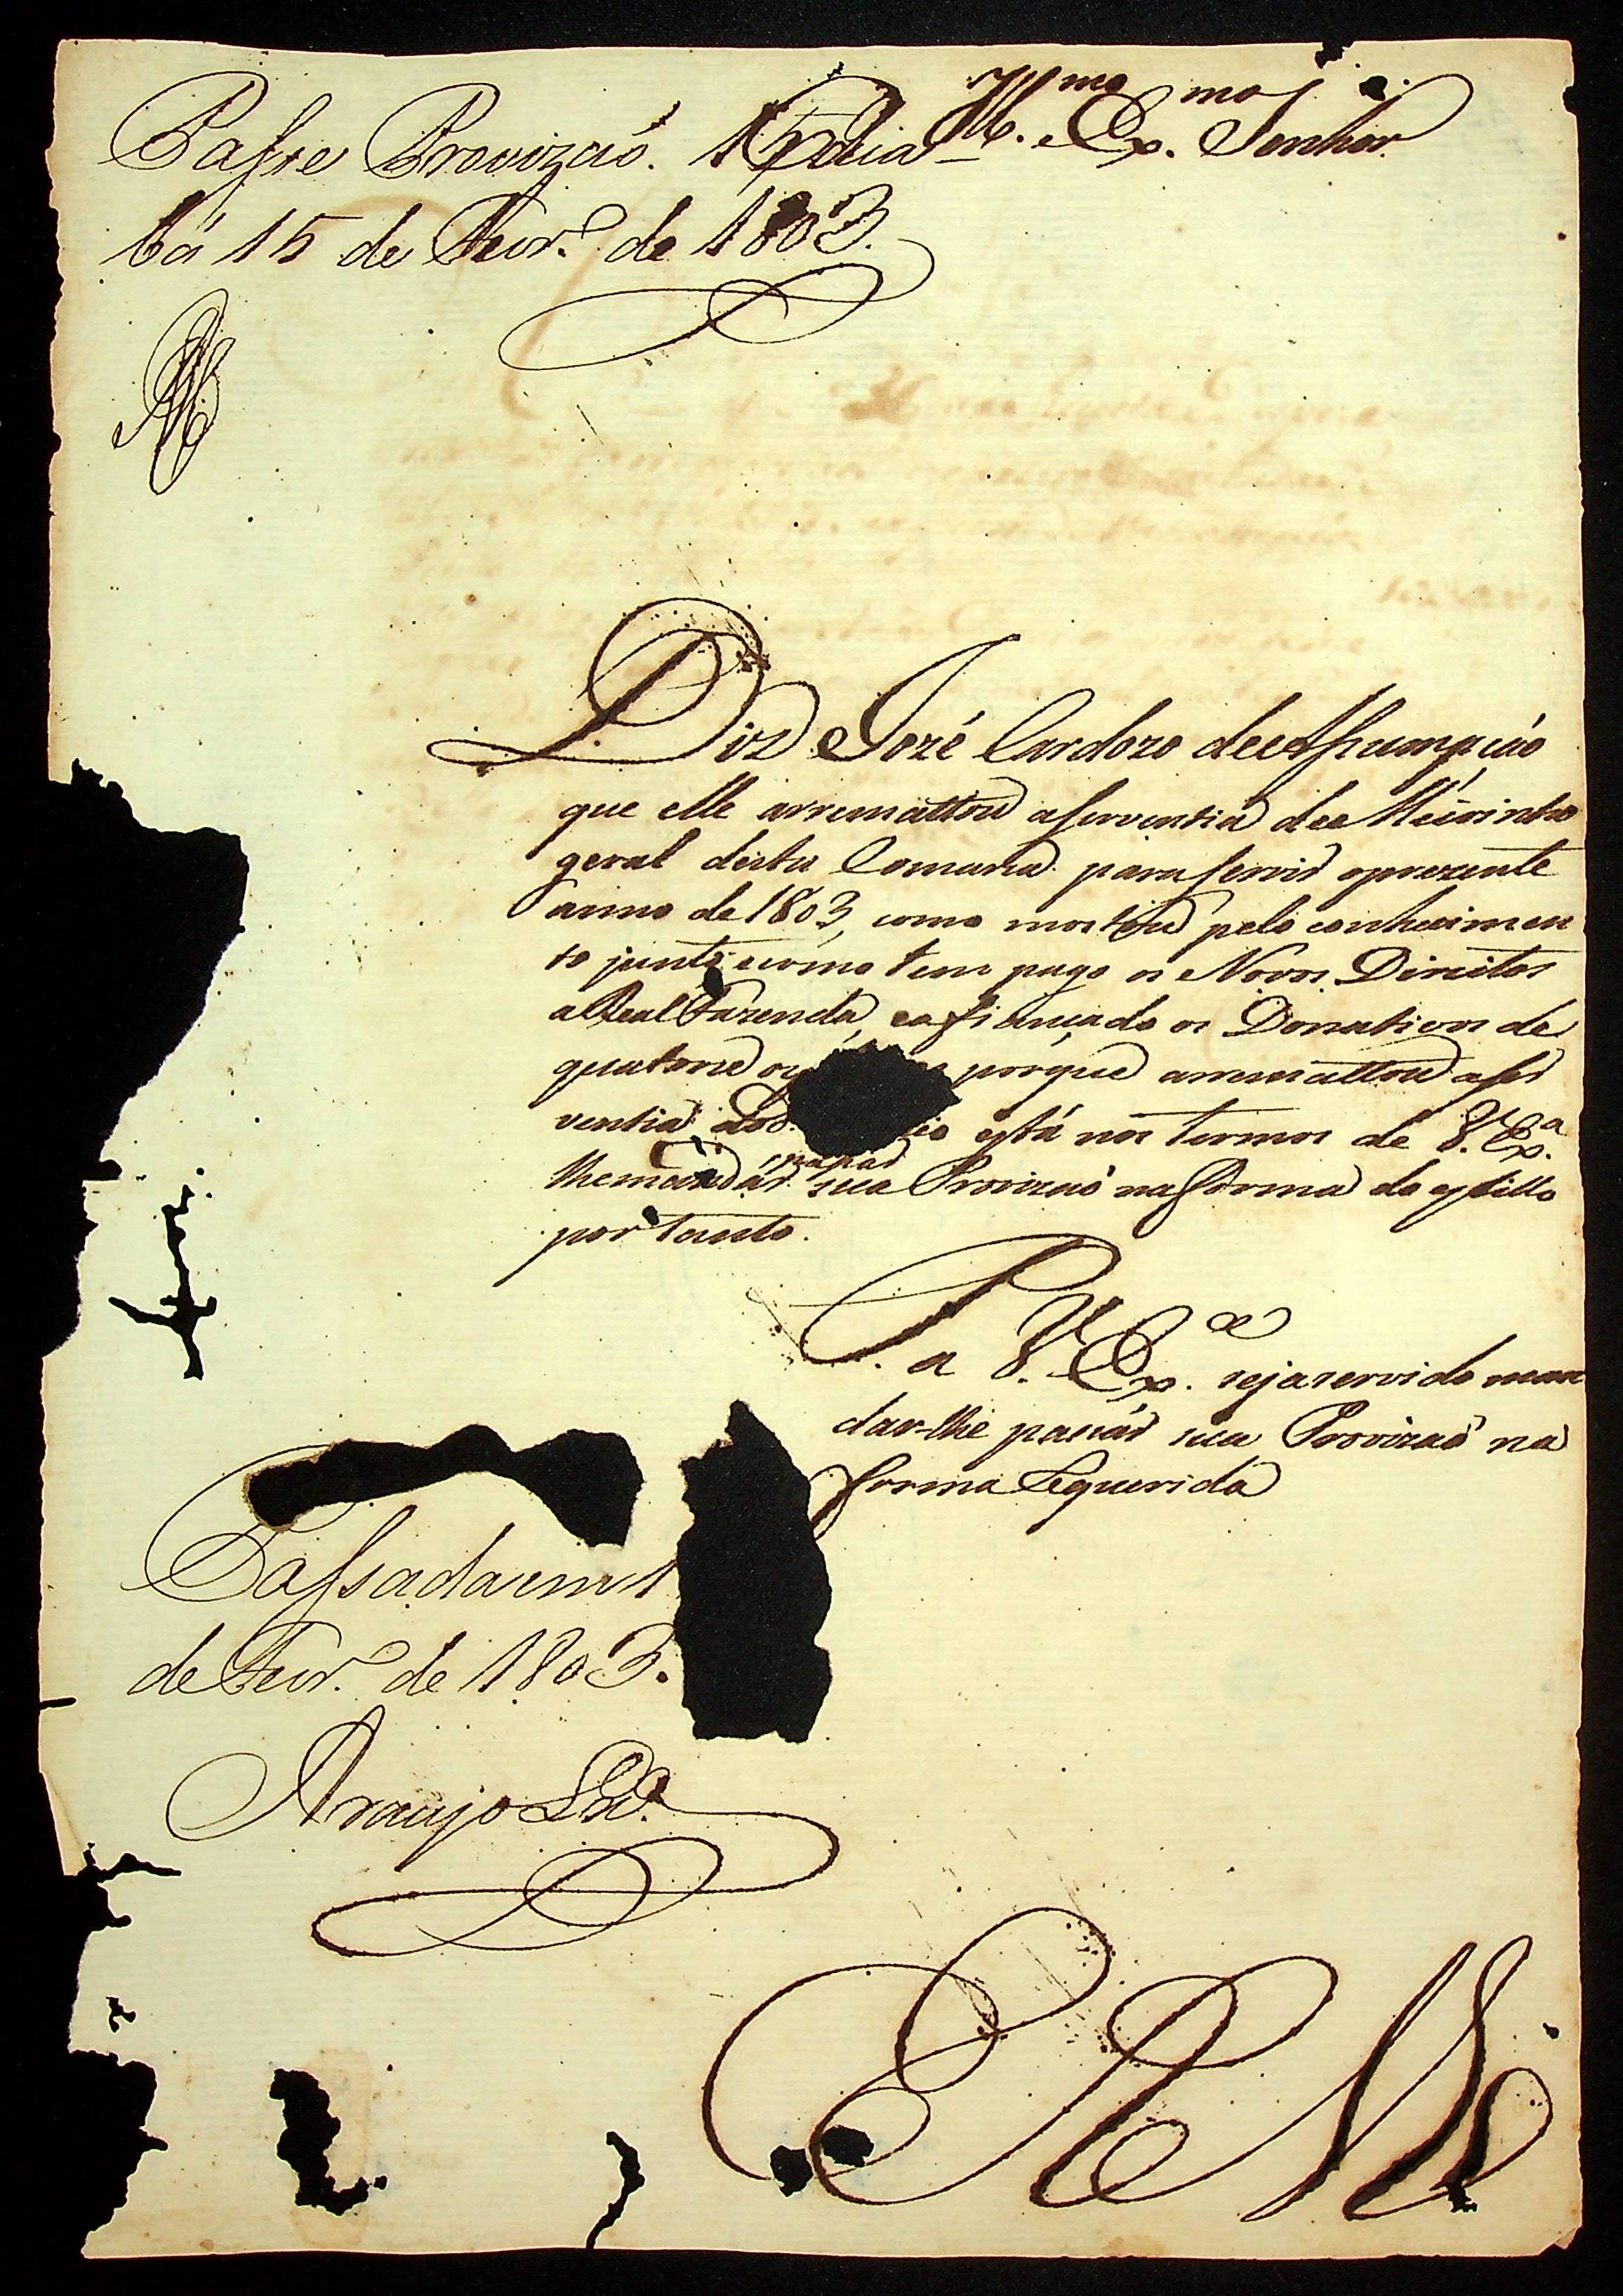 Passe Provizaõ. V.ª do Cuia-
bá 15 de Fevr.º de 1803.
Ill.mo e Ex.mo Senhor
Diz Jozé Cardozo de Assumpçáo
que elle arremattou a serventia de Meirinho
geral désta Comarca para servir o prezente
anno de 1803, como mostra pelo conhecimen
to junto, e como tem pago os Novos Direitos
a Real Fazenda, e afiançado os Donativos de
quatorze porque arremattou a ser
ventia do d. está nos termos de V. Ex.ª
lhe mandár passar sua Provizaõ na forma do estillo
por tanto.
P. a V. Ex.ª seja servido man
dar-lhe passár sua Provizaõ na
forma Requerida
Passada em 1
de Fevr.º de 1803.
Araujo
E R M